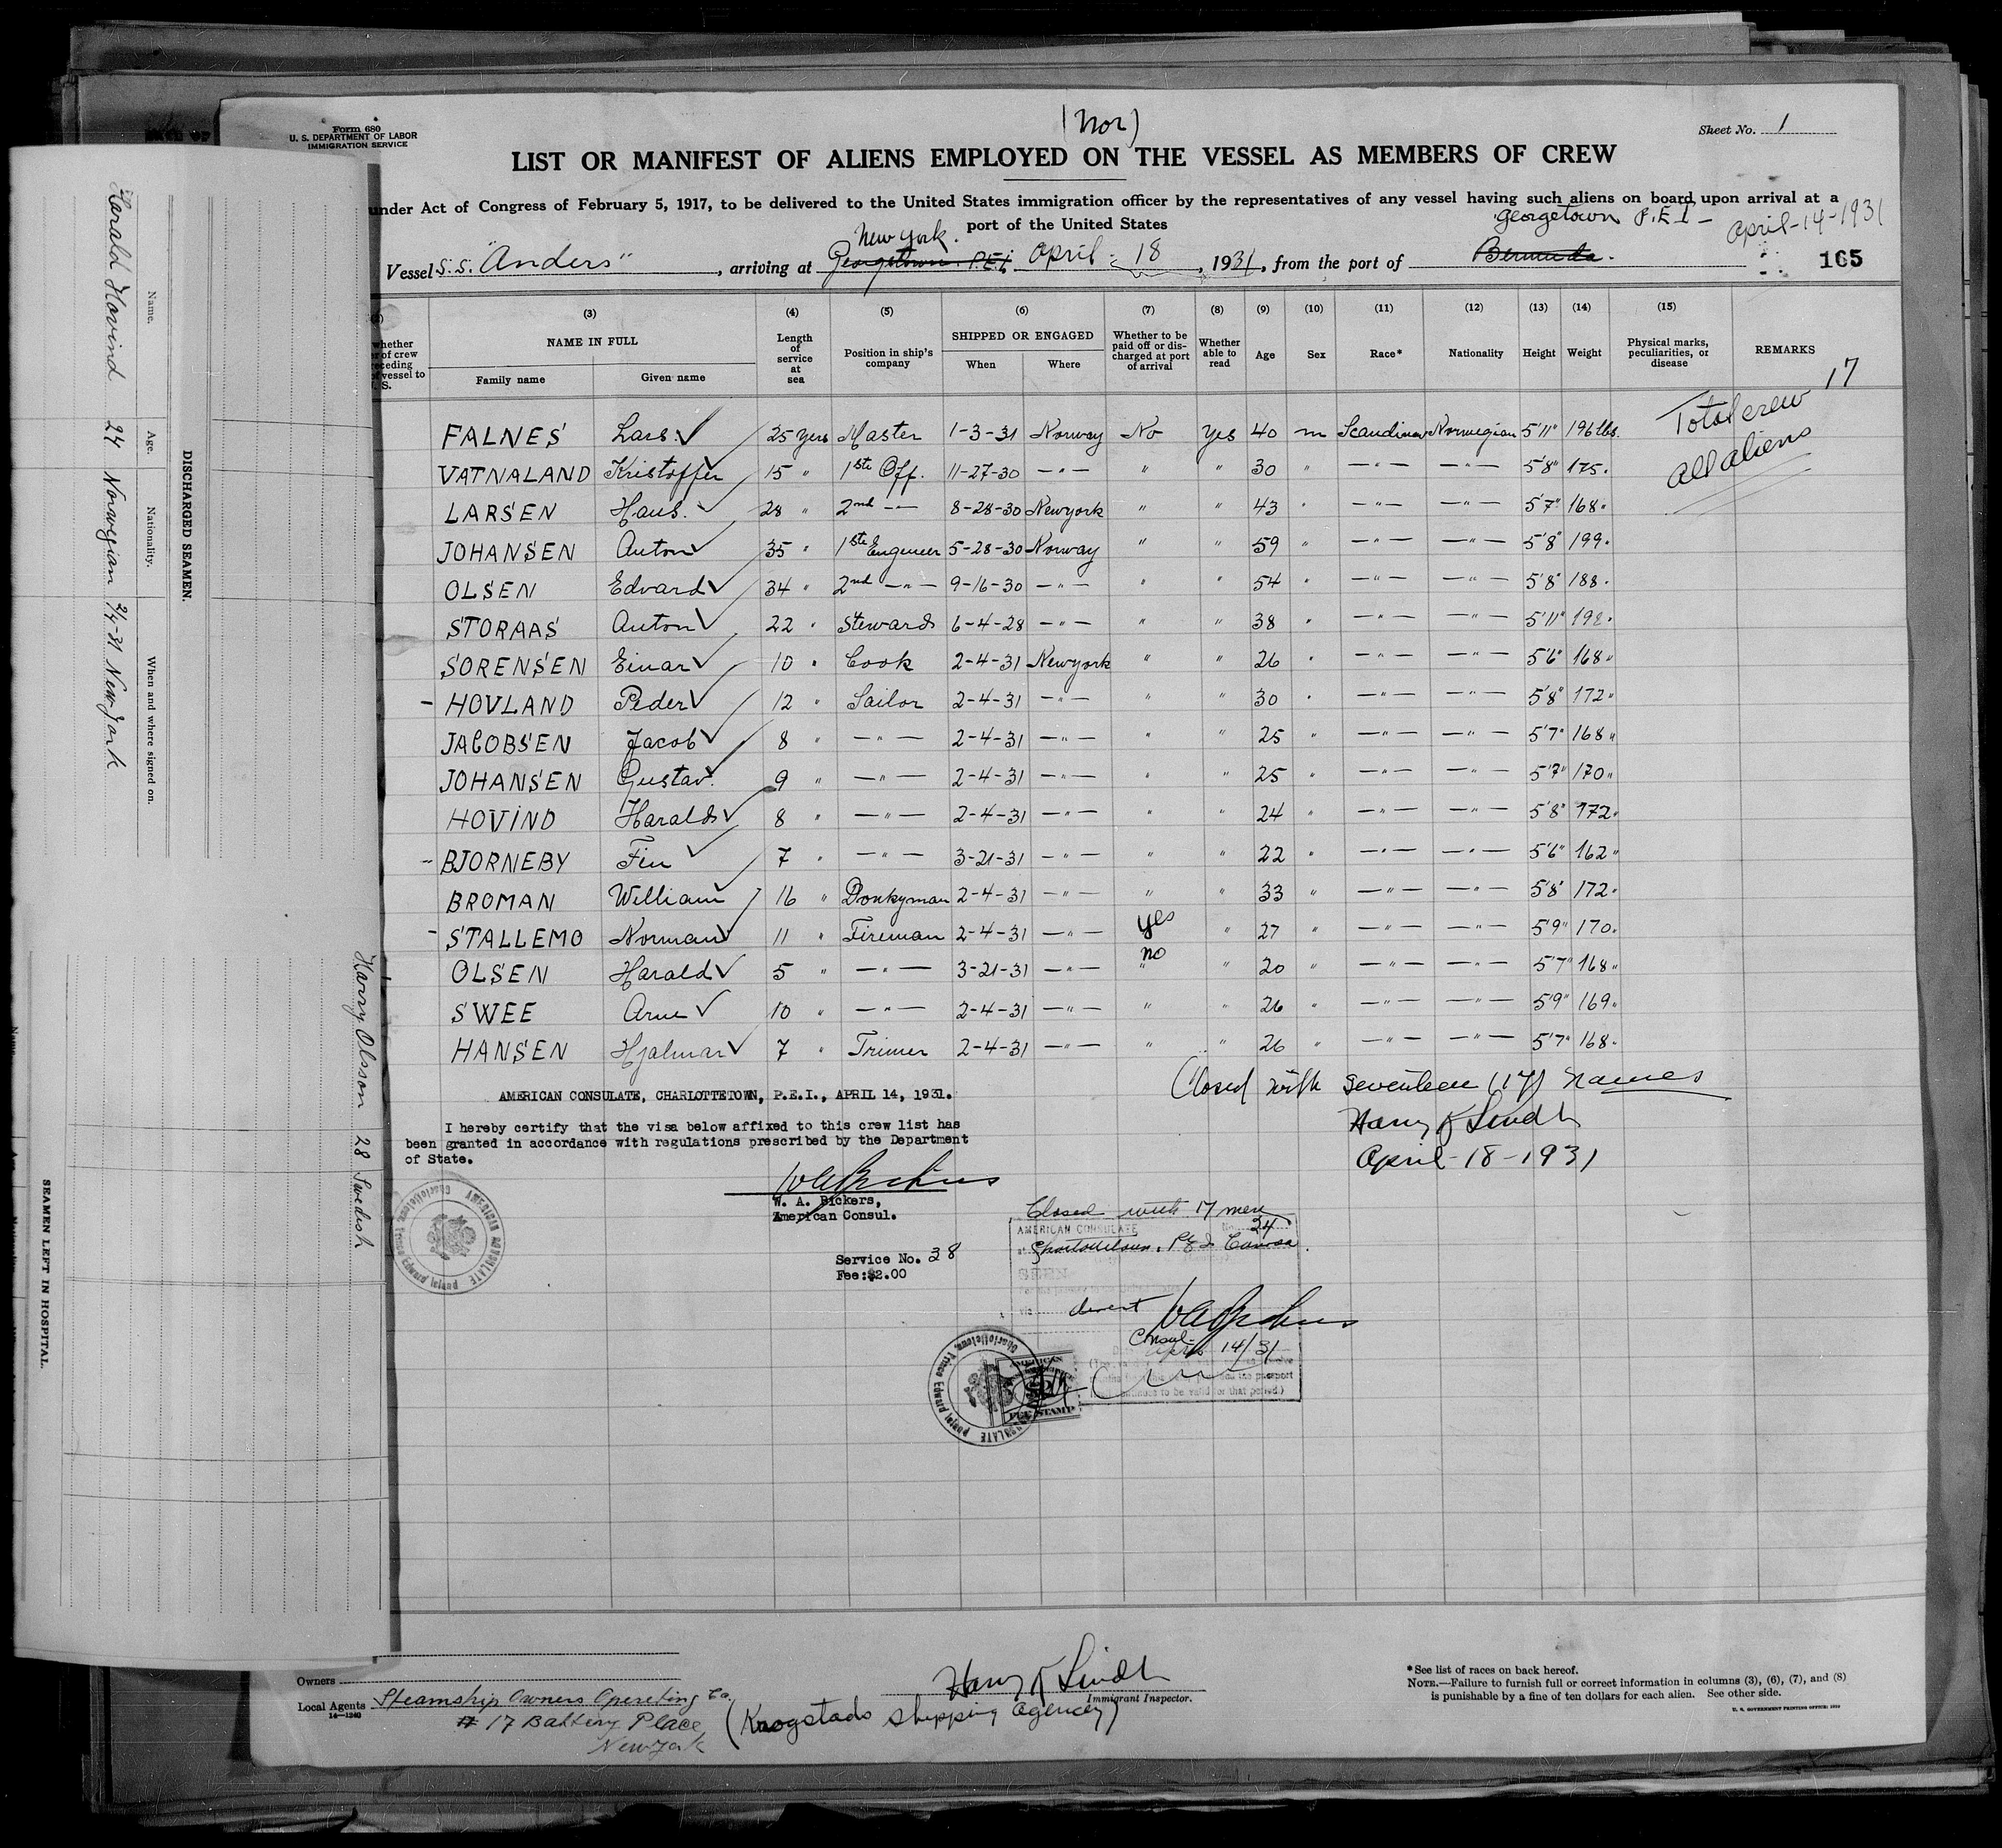 Form 680
U. S. DEPARTMENT OF LABOR
IMMIGRATION SERVICE
(Nor)
Sheet No. 1
LIST OR MANIFEST OF ALIENS EMPLOYED ON THE VESSEL AS MEMBERS OF CREW
under Act of Congress of February 5, 1917, to be delivered to the United States immigration officer by the representatives of any vessel having such aliens on board upon arrival at a
port of the United States
New York. Georgetown P.E.I - April-14-1931
Vessel S.S. "Anders", arriving at Georgetown P.E.I. April 18, 1931, from the port of Bermuda.
165
(3) (4) (5) (6) (7) (8) (9) (10) (11) (12) (13) (14) (15)
NAME IN FULL Length of service at sea Position in ship's company SHIPPED OR ENGAGED Whether to be paid off or discharged at port of arrival Whether able to read Age Sex Race* Nationality Height Weight Physical marks, peculiarities, or disease REMARKS
Family name Given name When Where
17
Total crew
all aliens
FALNES Lars 25 yrs Master 1-3-31 Norway No Yes 40 m Scandinav Norwegian 5'11" 196 lbs.
VATNALAND Kristoffer 15 " 1ste Off. 11-27-30 —"— " " 30 " —"— —"— 5'8" 175.
LARSEN Hans. 28 " 2nd —"— 8-28-30 Newyork " " 43 " —"— —"— 5'7" 168"
JOHANSEN Anton 35 " 1ste Engeneer 5-28-30 Norway " " 59 " —"— —"— 5'8" 199"
OLSEN Edvard 34 " 2nd —"— 9-16-30 —"— " " 54 " —"— —"— 5'8" 188"
STORAAS Anton 22 " Steward 6-4-28 —"— " " 38 " —"— —"— 5'11" 192"
SORENSEN Einar 10 " Cook 2-4-31 Newyork " " 26 " —"— —"— 5'6" 168"
- HOVLAND Peder 12 " Sailor 2-4-31 —"— " " 30 " —"— —"— 5'8" 172"
JACOBSEN Jacob 8 " —"— 2-4-31 —"— " " 25 " —"— —"— 5'7" 168"
JOHANSEN Gustav. 9 " —"— 2-4-31 —"— " " 25 " —"— —"— 5'7" 170"
HOVIND Harald 8 " —"— 2-4-31 —"— " " 24 " —"— —"— 5'8" 172"
- BJORNEBY Fin 7 " —"— 3-21-31 —"— " " 22 " —"— —"— 5'6" 162"
BROMAN William 16 " Donkyman 2-4-31 —"— " " 33 " —"— —"— 5'8" 172"
- STALLEMO Norman 11 " Fireman 2-4-31 —"— yes " 27 " —"— —"— 5'9" 170"
OLSEN Harald 5 " —"— 3-21-31 —"— no " 20 " —"— —"— 5'7" 168"
SWEE Arne 10 " —"— 2-4-31 —"— " " 26 " —"— —"— 5'9" 169"
HANSEN Hjalmar 7 " Trimer 2-4-31 —"— " " 26 " —"— —"— 5'7" 168"
Closed with seventeen (17) names
Harry K Lindh
April-18-1931
AMERICAN CONSULATE, CHARLOTTETOWN, P.E.I., APRIL 14, 1931.
I hereby certify that the visa below affixed to this crew list has
been granted in accordance with regulations prescribed by the Department
of State.
W. A. Bickers,
American Consul.
Service No. 38
Fee: $2.00
Closed with 17 men
AMERICAN CONSULATE No. 24
Charlottetown, P.E.I. Canada.
SEEN
via direct
Consul
April 14/31
AMERICAN CONSULATE
Charlottetown, Prince Edward Island
Charlottetown, Prince Edward Island
FEE STAMP
Owners
Local Agents Steamship Owners Operating Co.
14—1240
# 17 Battery Place
New York
(Krogstads Shipping Agency)
Harry K Lindh
Immigrant Inspector.
*See list of races on back hereof.
NOTE.—Failure to furnish full or correct information in columns (3), (6), (7), and (8)
is punishable by a fine of ten dollars for each alien. See other side.
U. S. GOVERNMENT PRINTING OFFICE: 1929
DISCHARGED SEAMEN.
Name. Age. Nationality. When and where signed on.
Harald Hovind 24 Norwegian 2/4-31 New York
SEAMEN LEFT IN HOSPITAL.
Harry Olsson 28 Swedish